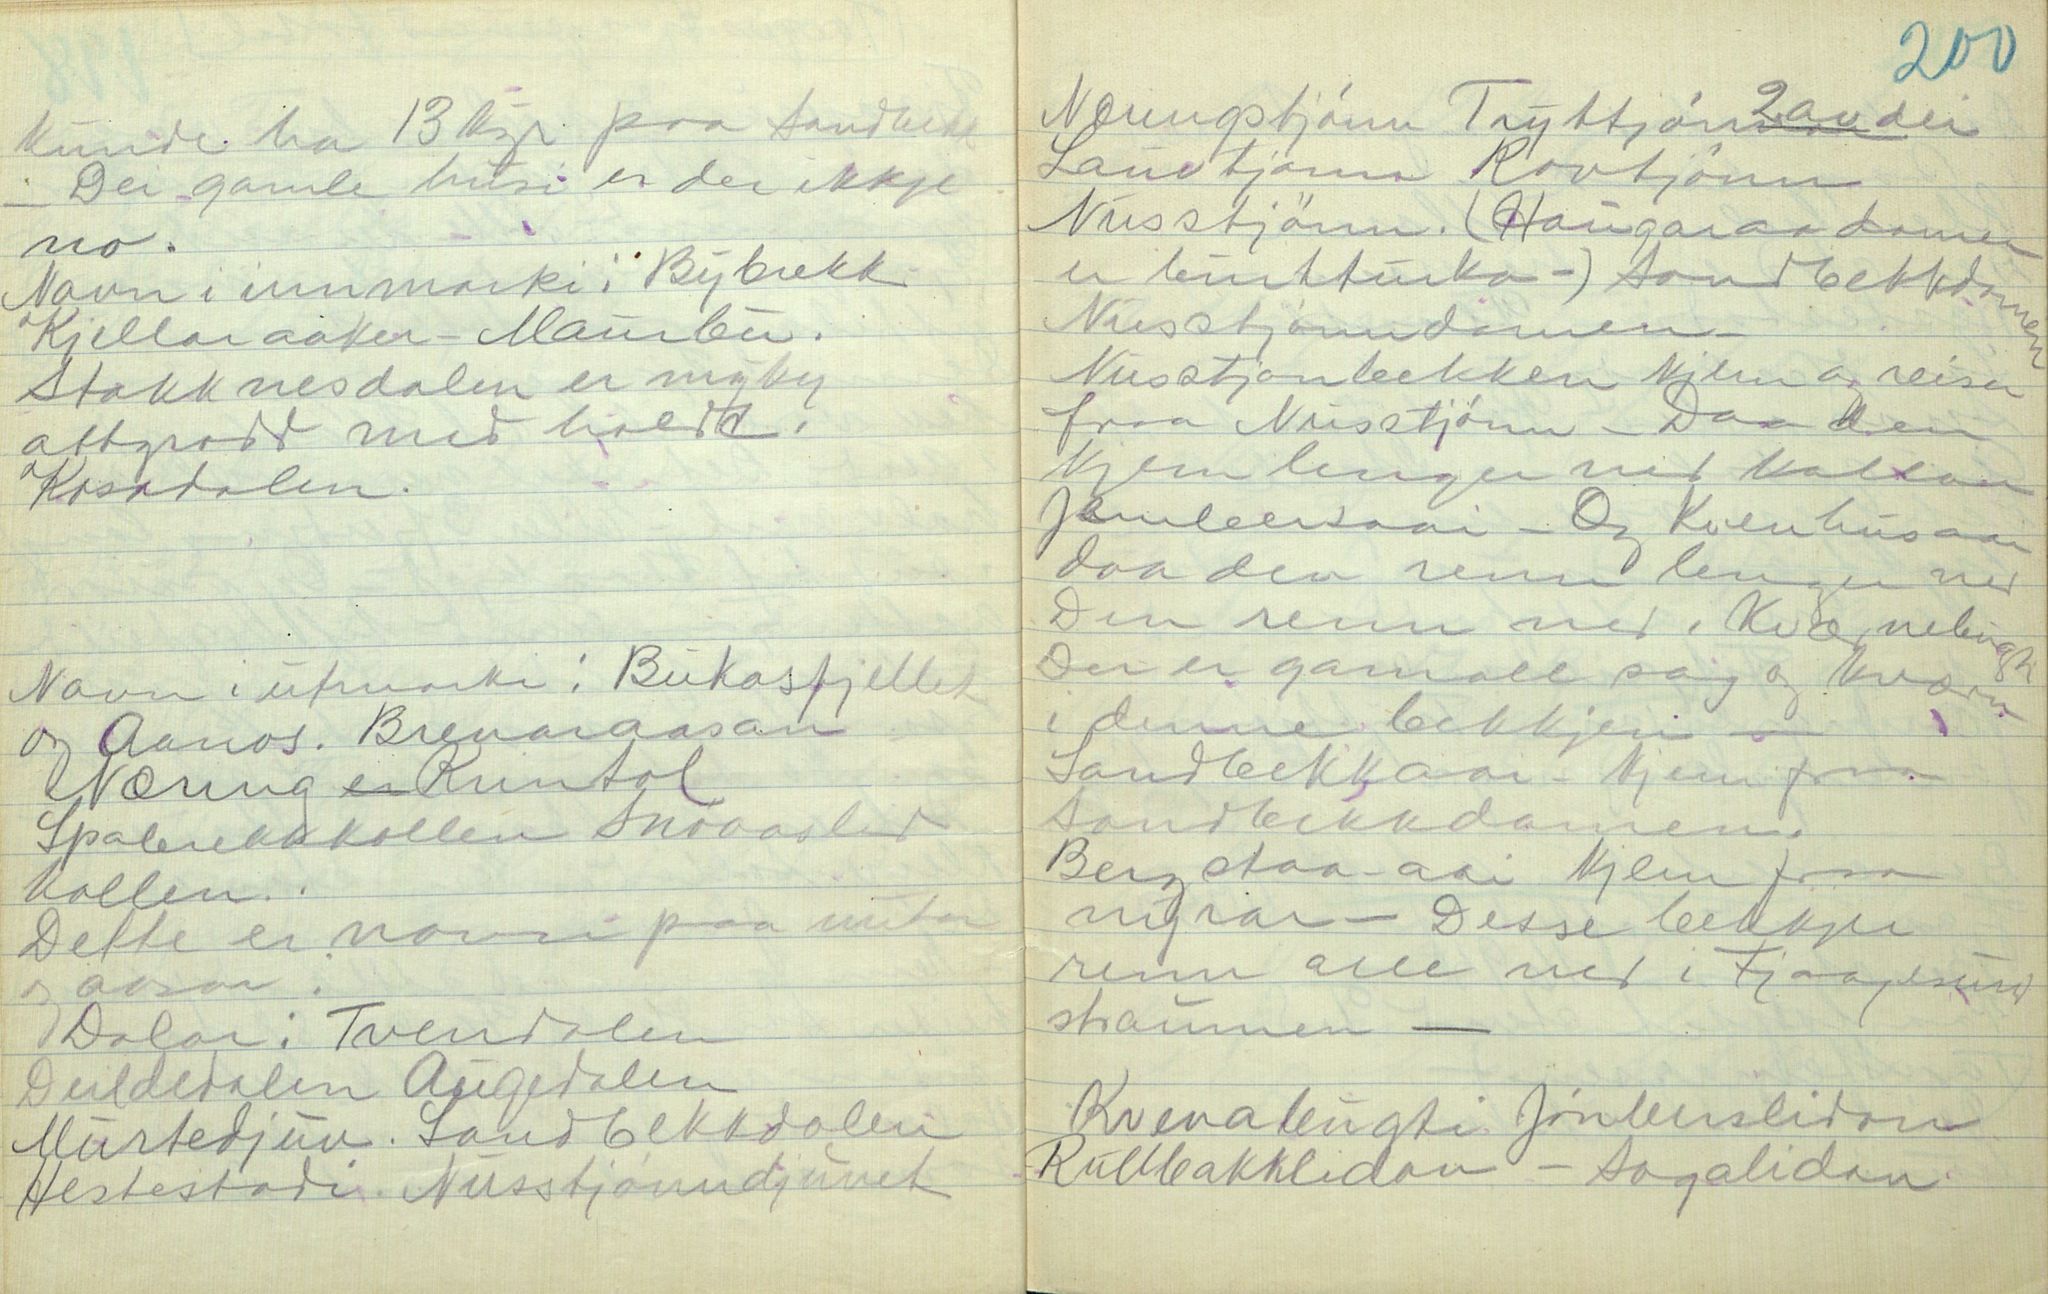 kunde ha 13 kyr paa Sandbekk
– Dei gamle husi er der ikkje
no.
Navn i innmarki: Bybrekk
Kjellaraaker – Maurbu.
Stakknesdalen er myky
attgrodd med holdt.
Kosadalen.
Navn i utmarki: Bukasfjellet
og Aanos. Brenaraasan
Næring er Runtol
Spabrekkkollen Snoaaslid
kollen.
Dette er navni paa nutar
og aasar.
Dalar: Tvendalen
Duldedalen Augedalen
Murtedjuv. Sandbekkdalen
Hestestodi. Nusstjønndjuvet
200
Næringstjónn Tryttjónn 2 av dei
Lauvtjonn Rovtjónn
Nusstjönn. (Haugaraadamen
er burtturka –) Sandbekkdamen
Nusstjónndamen –
Nusstjonbekken kjem og reiser
fraa Nusstjónn – Daa den
kjem lenger ned kallar
Jenbersaai – Og Kvenhusaai
daa den renn lenger ned
Den renn ned i Kværnebugti
Der er gamall sag og kværn
i denne bekkjen —
Sandbekkaai – kjem fraa
Sandbekkdamen.
Bergstaa-aai kjem fraa
myrar – Desse bekkjer
renn alle ned i Fjaagesund
straumen —
Kvenabugti Jónberslidan
Rullbakklidan – Sagalidan